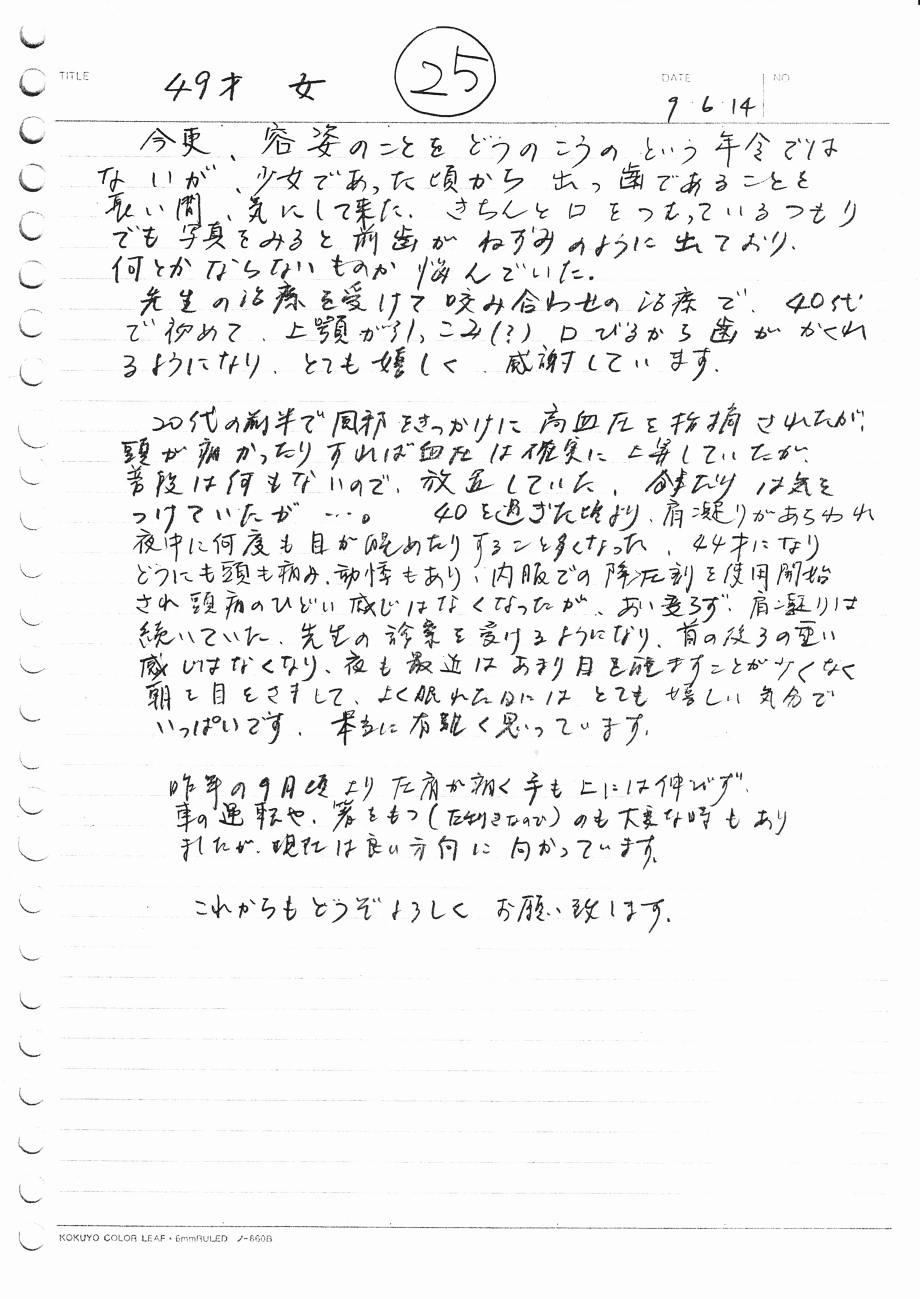 25
TITLE 49才 女 DATE 9.6.14 NO
今更、容姿のことをどうのこうのという年令では
ないが、少女であった頃から出っ歯であることを
長い間、気にして来た。きちんと口をつむっているつもり
でも写真をみると前歯がねずみのように出ており、
何とかならないものか悩んでいた。
先生の治療を受けて咬み合わせの治療で、40代
で初めて、上顎が引っこみ(?)口びるから歯がかくれ
るようになり、とても嬉しく、感謝しています。
20代の前半で風邪をきっかけに高血圧を指摘されたが、
頭が痛かったりすれば血圧は確実に上昇していたが、
普段は何もないので、放置していた、食事だけは気を
つけていたが…。 40を過ぎた頃より、肩凝りがあらわれ
夜中に何度も目が醒めたりすること多くなった、44才になり
どうにも頭も痛み、動悸もあり、内服での降圧剤を使用開始
され頭痛のひどい感じはなくなったが、あい変らず、肩凝りは
続いていた、先生の診察を受けるようになり、首の後ろの重い
感じはなくなり、夜も最近はあまり目を醒ますことが少くなく
朝と目をさまして、よく眠れた日にはとても嬉しい気分で
いっぱいです。本当に有難く思っています。
昨年の9月頃より左肩が痛く手も上には伸びず、
車の運転や、箸をもつ(左利きなので)のも大変な時もあり
ましたが、現在は良い方向に向かっています。
これからもどうぞよろしくお願い致します。
KOKUYO COLOR LEAF・6mmRULED ノ-660B